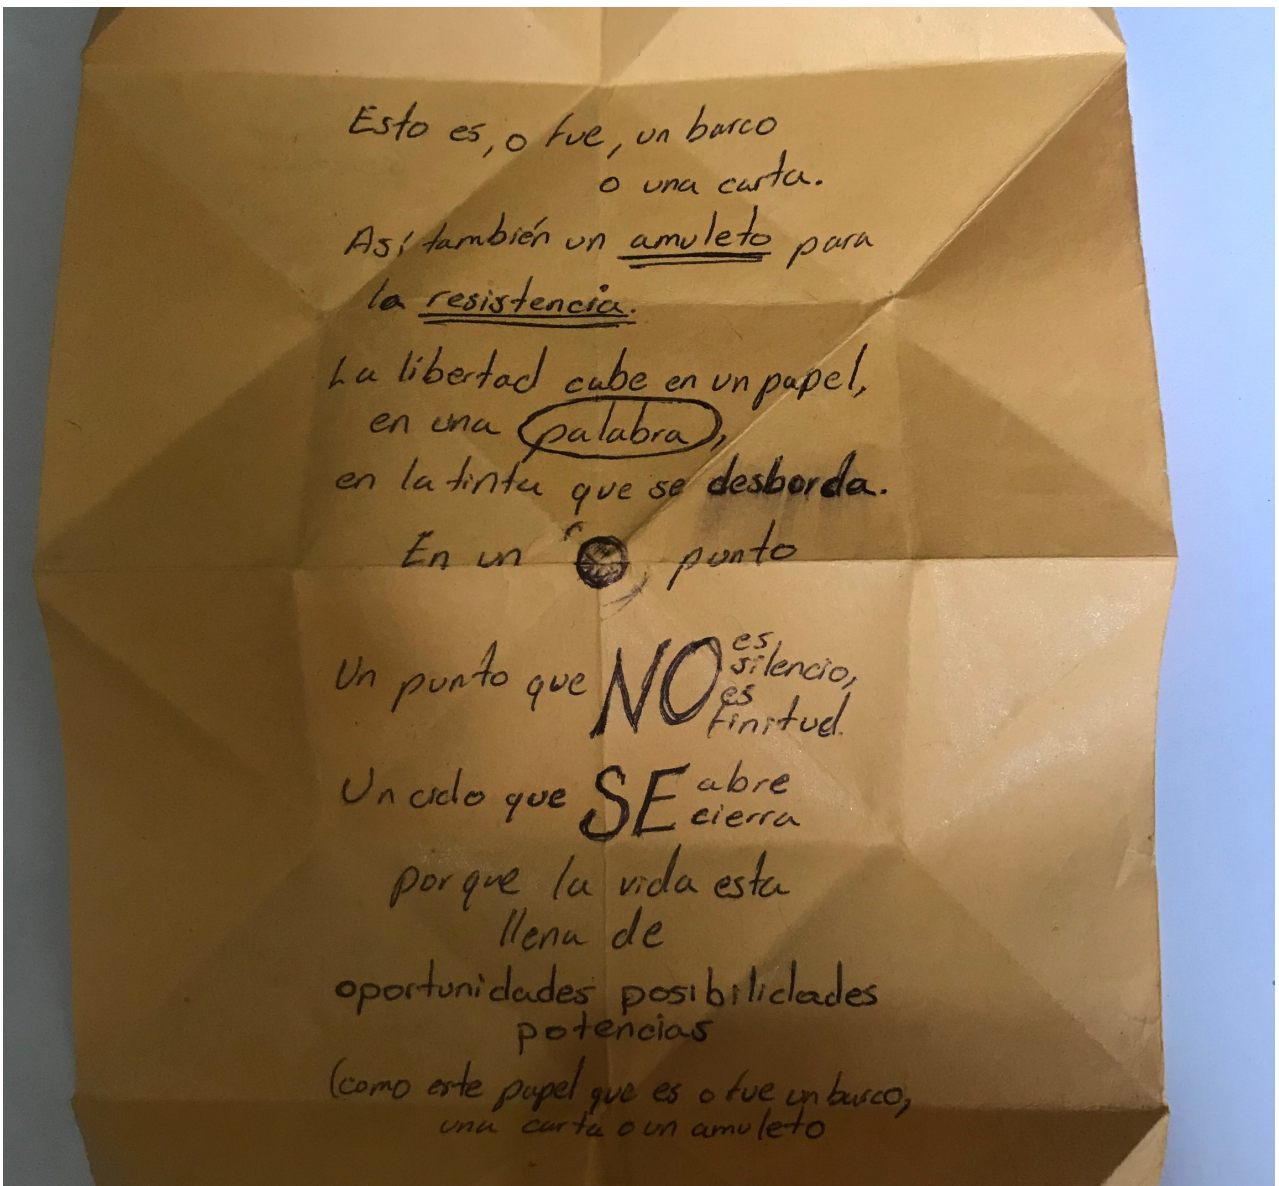 Esto es, o fue, un barco
o una carta.
Así también un amuleto para
la resistencia.
La libertad cabe en un papel,
en una palabra,
en la tinta que se desborda.
En un punto
Un punto que NO es
silencio,
es
finitud.
Un ciclo que SE abre
cierra
porque la vida esta
llena de
oportunidades posibilidades
potencias
(como este papel que es o fue un barco,
una carta o un amuleto